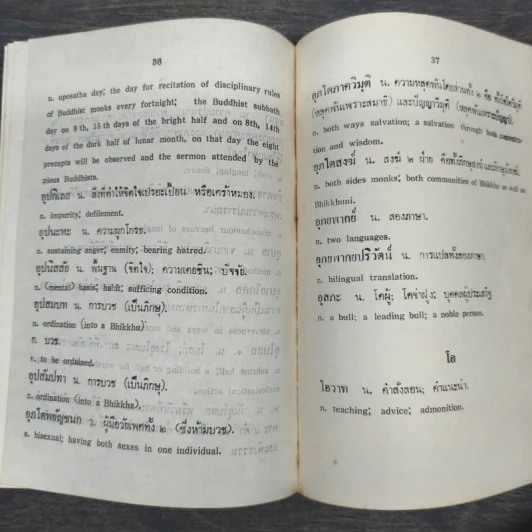 36
n. uposatha day; the day for recitation of disciplinary rules
of Buddhist monks every fortnight; the Buddhist sabbath
day on 8 th, 15 th days of the bright half and on 8th, 14th
days of the dark half of lunar month, on that day the eight
precepts will be observed and the sermon attended by the
pious Buddhists.
อุปกิเลส น. สิ่งที่ทำให้จิตใจเปรอะเปื้อน หรือเศร้าหมอง.
n. impurity; defilement.
อุปนะหะ น. ความผูกโกรธ.
n. sustaining anger; enmity; bearing hatred.
อุปนิสสัย น. พื้นฐาน (จิตใจ); ความเคยชิน; ปัจจัย.
n. (mental) basis; habit; sufficing condition.
อุปสมบท น. การบวช (เป็นภิกษุ).
n. ordination (into a Bhikkhu)
ก. บวช.
v. to be ordained.
อุปสัมปทา น. การบวช (เป็นภิกษุ).
n. ordination (into a Bhikkhu).
อุภโตพยัญชนก ว. ผู้มีอวัยวเพศทั้ง ๒ (ซึ่งห้ามบวช).
n. bisexual; having both sexes in one individual.
37
อุภโตภาควิมุติ น. ความหลุดพ้นโดยส่วนทั้ง ๒ คือ ทั้งเจโตวิมุติ
(หลุดพ้นเพราะสมาธิ) และปัญญาวิมุติ (หลุดพ้นเพราะปัญญา).
n. both ways salvation; a salvation through both concentra-
tion and wisdom.
อุภโตสงฆ์ น. สงฆ์ ๒ ฝ่าย คือทั้งภิกษุสงฆ์ และภิกษุณีสงฆ์.
n. both sides monks; both communities of Bhikkhu as well as
Bhikkhuni.
อุภยพากย์ น. สองภาษา.
n. two languages.
อุภยพากยปริวัตน์ น. การแปลทั้งสองภาษา.
n. bilingual translation.
อุสภะ น. โคผู้; โคจ่าฝูง; บุคคลผู้ประเสริฐ.
n. a bull; a leading bull; a noble person.
โอ
โอวาท น. คำสั่งสอน; คำแนะนำ.
n. teaching; advice; admonition.